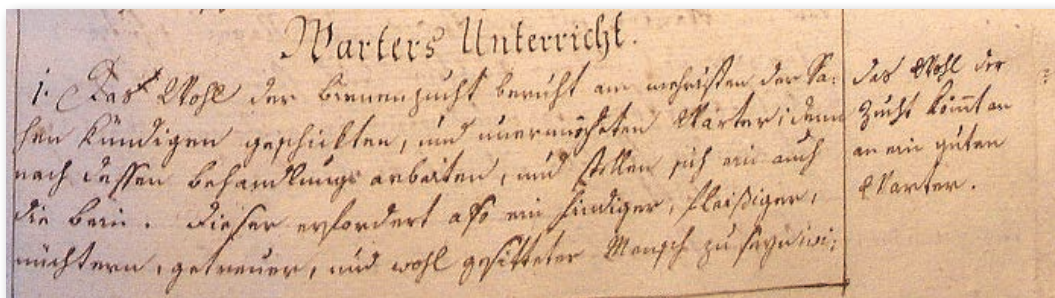 Warters Unterricht.
1. Das Wohl der bienenzucht beruht am mehristen der Sa-
hen kündigen geschickten, und unermüdeten Warter; denn
nach dessen behandlungs arbeiten, und stellen sich ein auch
die bein. Dieser erfordert also ein fündiger, fleißiger,
nüchtern, getreuer, und wohl gesitteter Mensch zu seyn:
das Wohl der
Zucht kömt an
an ein guten
Warter.